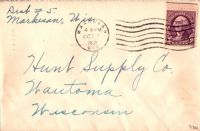 Dist # 5
Markesan, Wis.
Hunt Supply Co.
Wautoma
Wisconsin